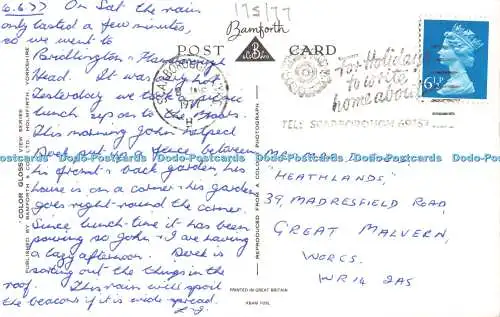 6.6.77 On Sat the rain
only lasted a few minutes,
so we went to
Bridlington & Flamborough
Head. It was very hot
Yesterday we took a picnic
lunch up on to the Moors.
This morning John helped
Derek put up a fence between
his front & back garden, his
house is on a corner & his garden
goes right round the corner.
Since lunch-time it has been
pouring so John & I are having
a lazy afternoon. Derek is
sorting out the things in the
roof. This rain will spoil
the beacons if it is wide spread.
175/77
Bamforth
POST CARD
SCARBOROUGH
1977
For Holidays
write
home about
TELE SCARBOROUGH
6½P
"HEATHLANDS,"
39, MADRESFIELD ROAD,
GREAT MALVERN,
WORCS.
WR14 2AS
"COLOR GLOSS" VIEW SERIES
PUBLISHED BY BAMFORTH & CO. LTD., HOLMFIRTH, YORKSHIRE
REPRODUCED FROM A COLOUR PHOTOGRAPH
PRINTED IN GREAT BRITAIN
Dodo-Postcards Dodo-Postcards Dodo-Postcards Dodo-Postcards Dodo-Postcards